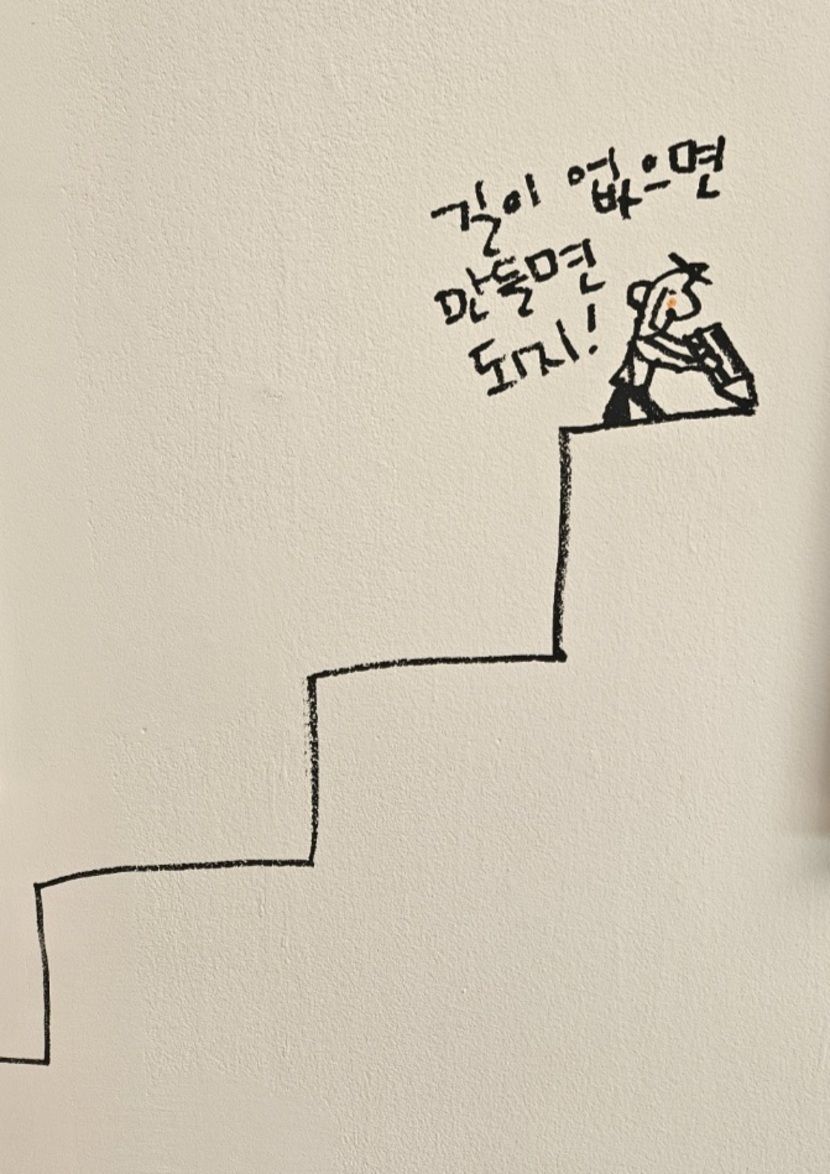 길이 없으면
만들면
되지!